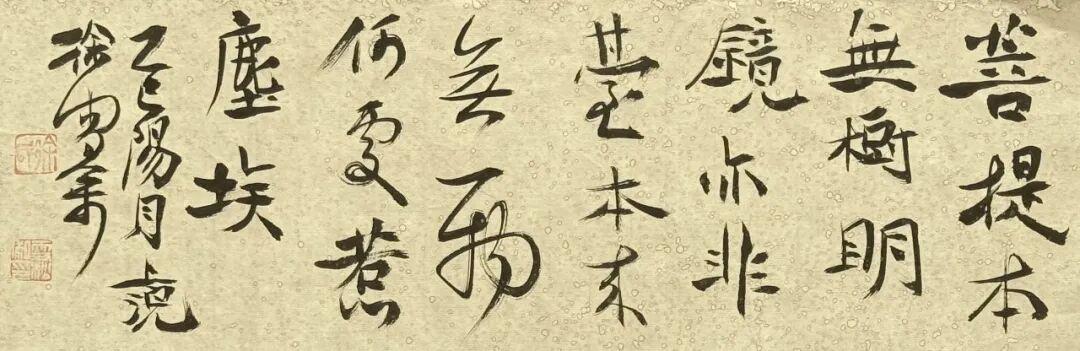 菩提本
無樹明
鏡亦非
臺本来
無一物
何處惹
塵埃
乙巳陽月上浣
徐